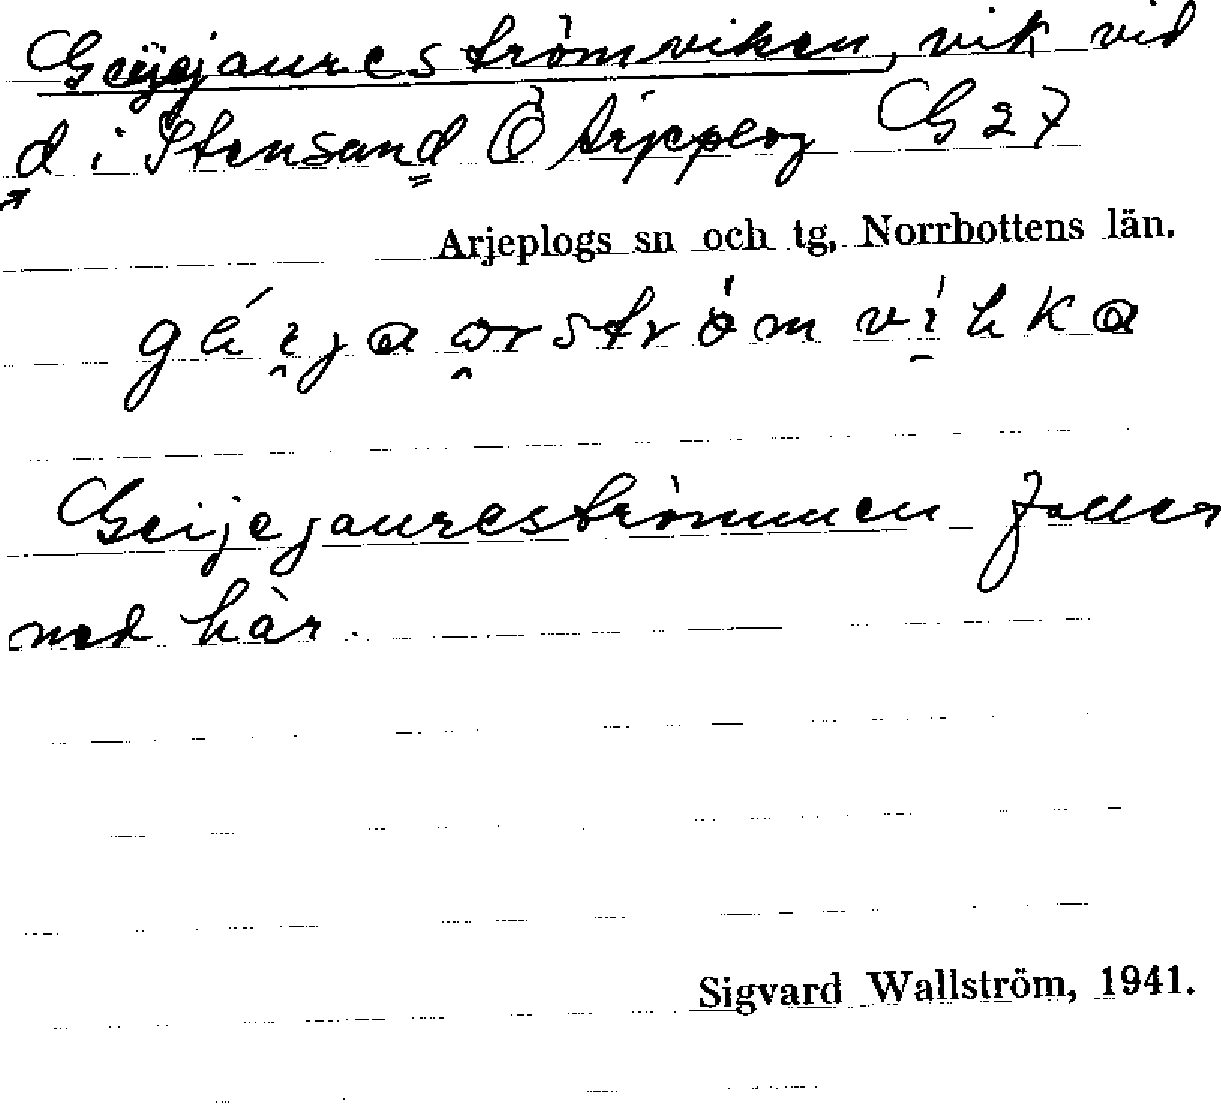 Geijejauresströmviken, vik vid
d i Stensund Ö Arjeplog G 27
Arjeplogs sn och tg, Norrbottens län.
Geijejaureströmmen faller
ned här.
Sigvard Wallström, 1941.